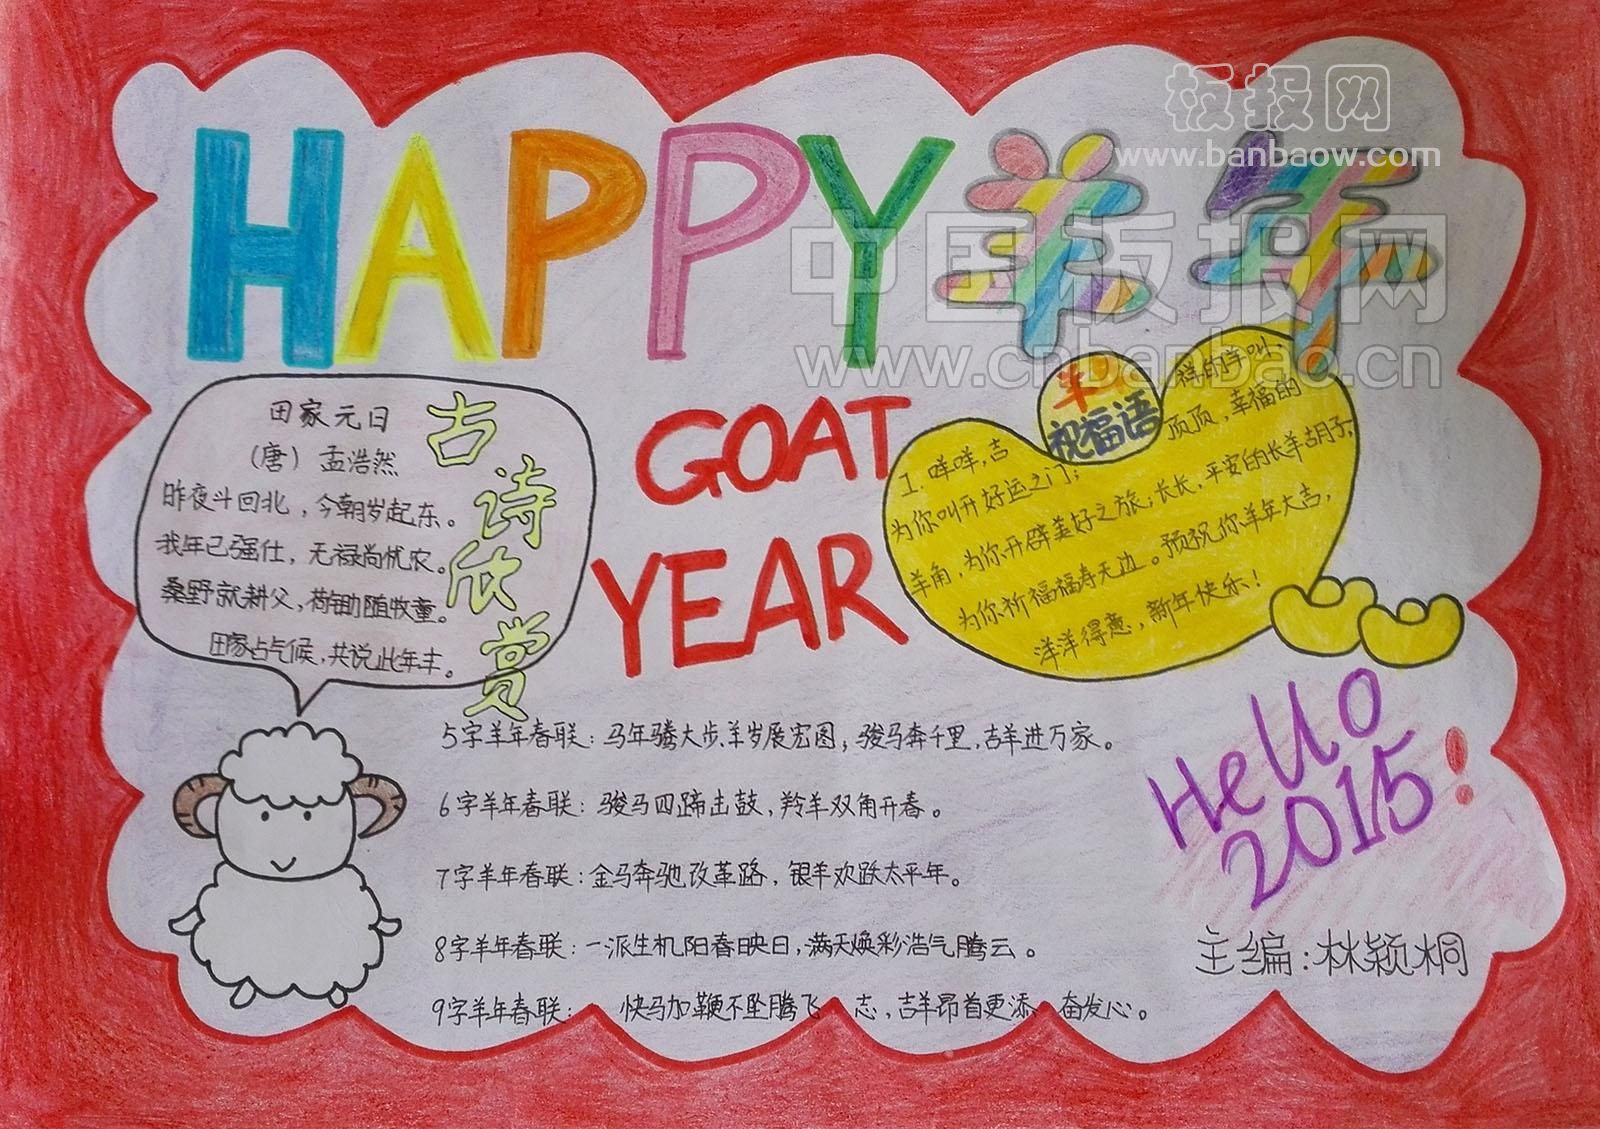 板报网
www.banbaow.com
HAPPY 羊年
中国板报网
www.cnbanbao.cn
GOAT
YEAR
古诗欣赏
田家元日
(唐) 孟浩然
昨夜斗回北，今朝岁起东。
我年已强仕，无禄尚忧农。
桑野就耕父，荷锄随牧童。
田家占气候，共说此年丰。
羊
祝福语
1. 咩咩，吉祥的羊叫，
为你叫开好运之门；顶顶，幸福的
羊角，为你开辟美好之旅；长长，平安的长羊胡子，
为你祈福福寿无边。预祝你羊年大吉，
洋洋得意，新年快乐！
5字羊年春联：马年腾大步，羊岁展宏图；骏马奔千里，吉羊进万家。
6字羊年春联：骏马四蹄击鼓，羚羊双角开春。
7字羊年春联：金马奔驰改革路，银羊欢跃太平年。
8字羊年春联：一派生机阳春映日，满天焕彩浩气腾云。
9字羊年春联：快马加鞭不坠腾飞志，吉羊昂首更添奋发心。
Hello
2015！
主编：林颖桐